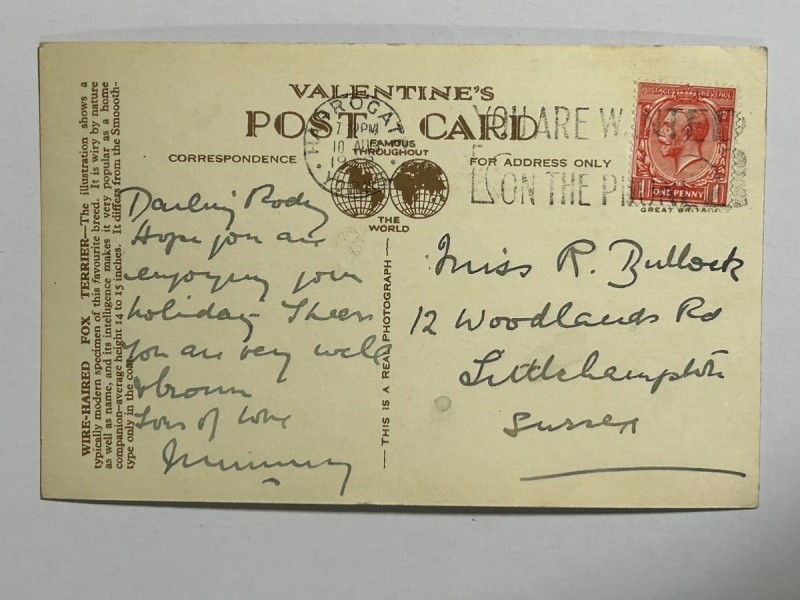 VALENTINE'S
POST CARD
FAMOUS
THROUGHOUT
THE
WORLD
CORRESPONDENCE
FOR ADDRESS ONLY
HARROGATE
7 PM
10 AU
19
YOU ARE WANTED
ON THE PHONE
POSTAGE REVENUE
ONE PENNY
GREAT BRITAIN
— THIS IS A REAL PHOTOGRAPH —
WIRE-HAIRED FOX TERRIER—The illustration shows a
typically modern specimen of this favourite breed. It is wiry by nature
as well as name, and its intelligence makes it very popular as a home
companion—average height 14 to 15 inches. It differs from the Smoooth-
type only in the coat.
Darling Rody
Hope you are
enjoying your
holiday. I hear
you are very well
& brown
Tons of love
Mummy
Miss R. Bullock
12 Woodlands Rd
Littlehampton
Sussex